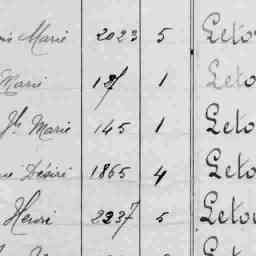 Marie 2023 5 Leto
Marie 127 1 Leto
Jh Marie 145 1 Leto
Désiré 1865 4 Leto
Henri 2237 5 Letou